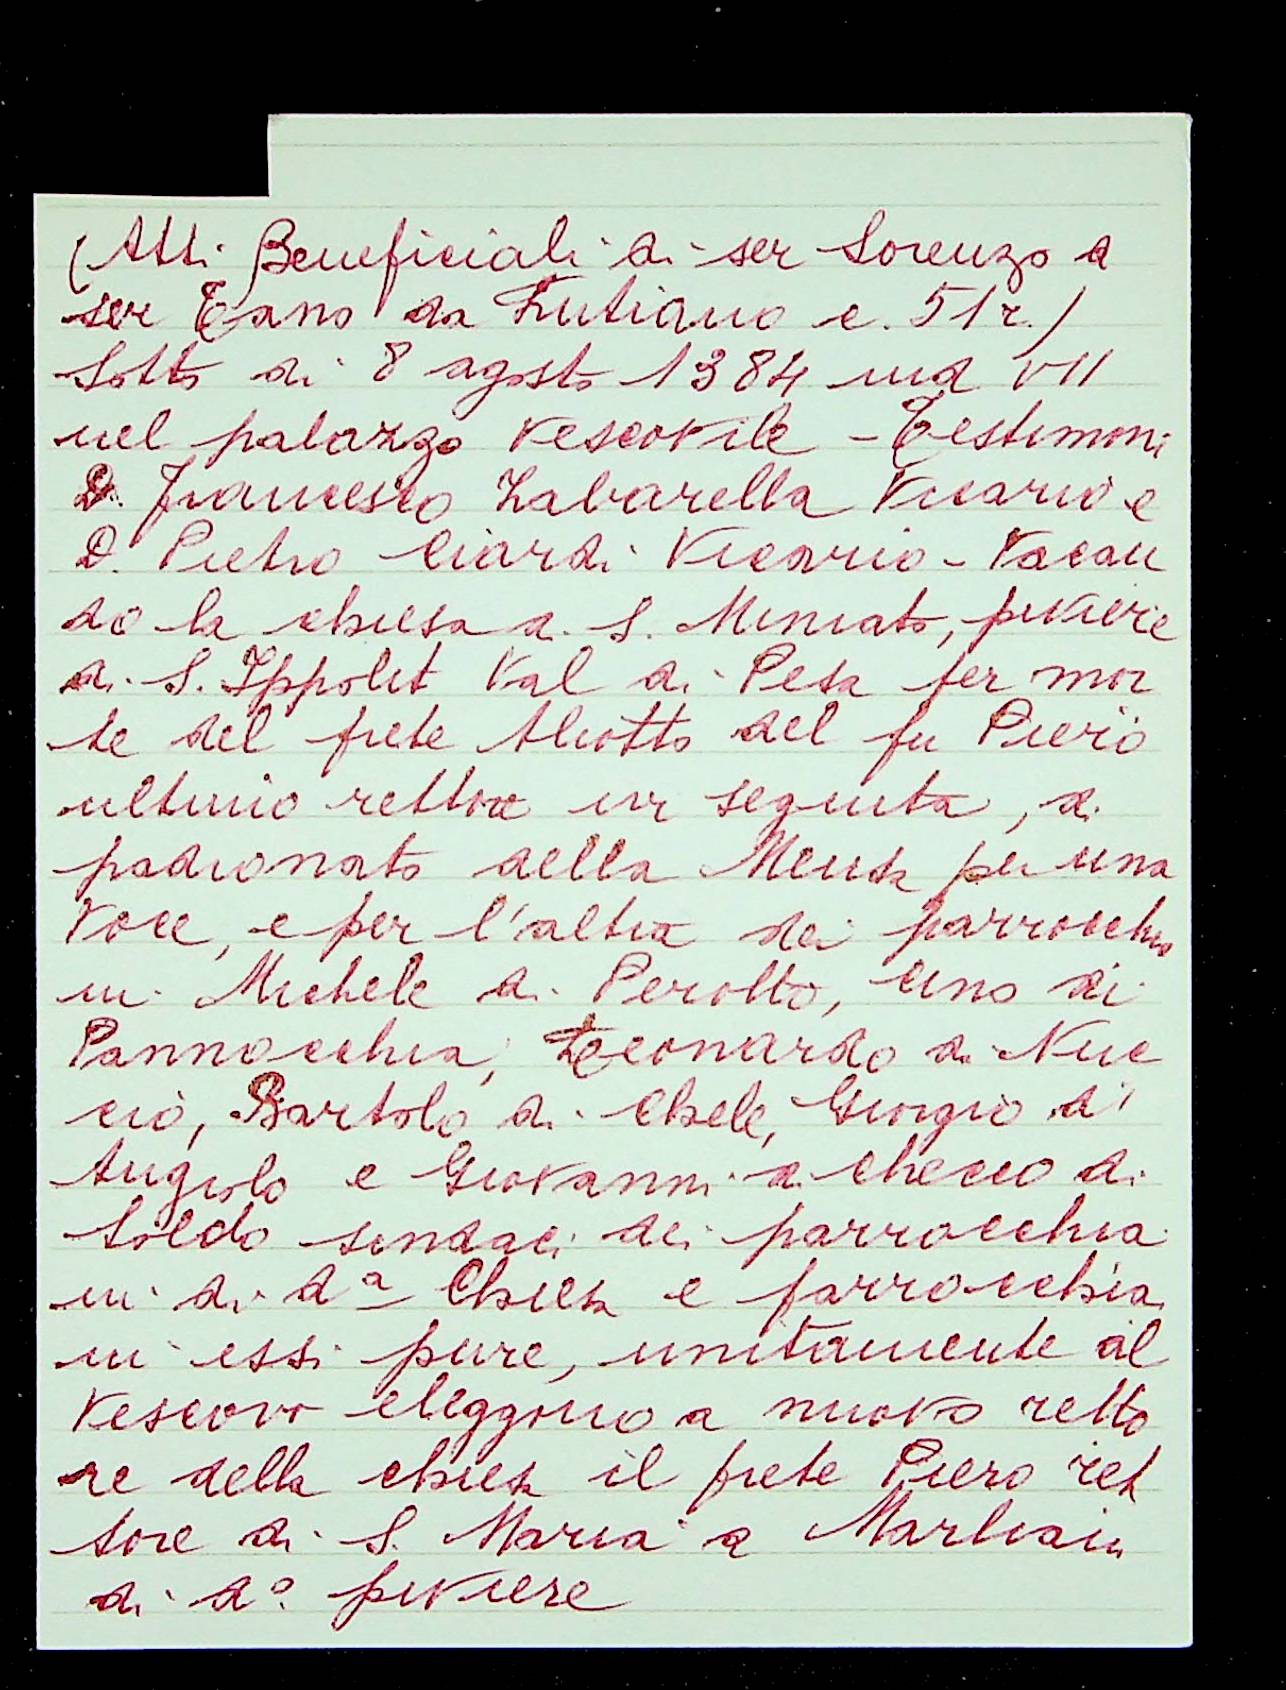 (Atti Beneficiali di ser Lorenzo d
ser Tano da Lutiano c. 51 r.)
Sotto di 8 agosto 1384 ind VII
nel palazzo Vescovile - Testimoni
D. Francesco Zabarella Vicario e
D. Pietro Ciardi Vicario - Vacan
do la chiesa di S. Miniato, piviere
di S. Ippolit Val di Pesa per mor
te del prete Aliotto del fu Piero
ultimio rettore ivi seguita, di
padronato della Mensa per una
voce, e per l'altra dei parrocchia
ni Michele di Perotto, uno di
Pannocchia, Leonardo di Nuc
cio, Bartolo di Chele, Giorgio d'
Angiolo e Giovanni di Checco di
Soldo sindaci dei parrocchia
ni di dª Chiesa e parrocchia
ni essi pure, unitamente al
Vescovo eleggono a nuovo retto
re della chiesa il prete Piero ret
tore di S. Maria a Marliain
di dº piviere